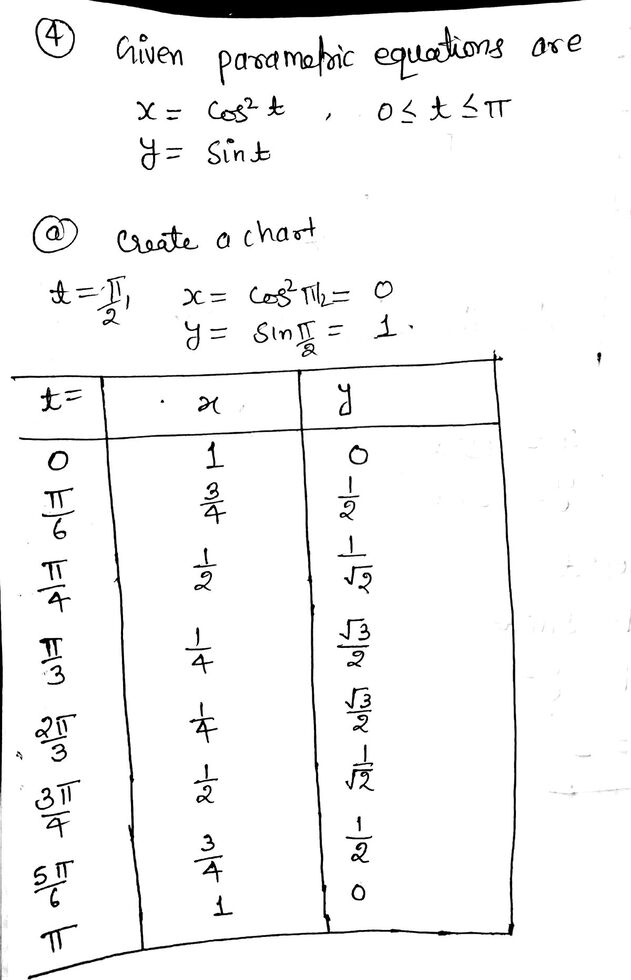 ④ Given parametric equations are
x = cos² t , 0 ≤ t ≤ π
y = sin t
ⓐ Create a chart
t = π/2, x = cos² π/2 = 0
y = sin π/2 = 1.
t = x y
0 1 0
π/6 3/4 1/2
π/4 1/2 1/√2
π/3 1/4 √3/2
2π/3 1/4 √3/2
3π/4 1/2 1/√2
5π/6 3/4 1/2
π 1 0